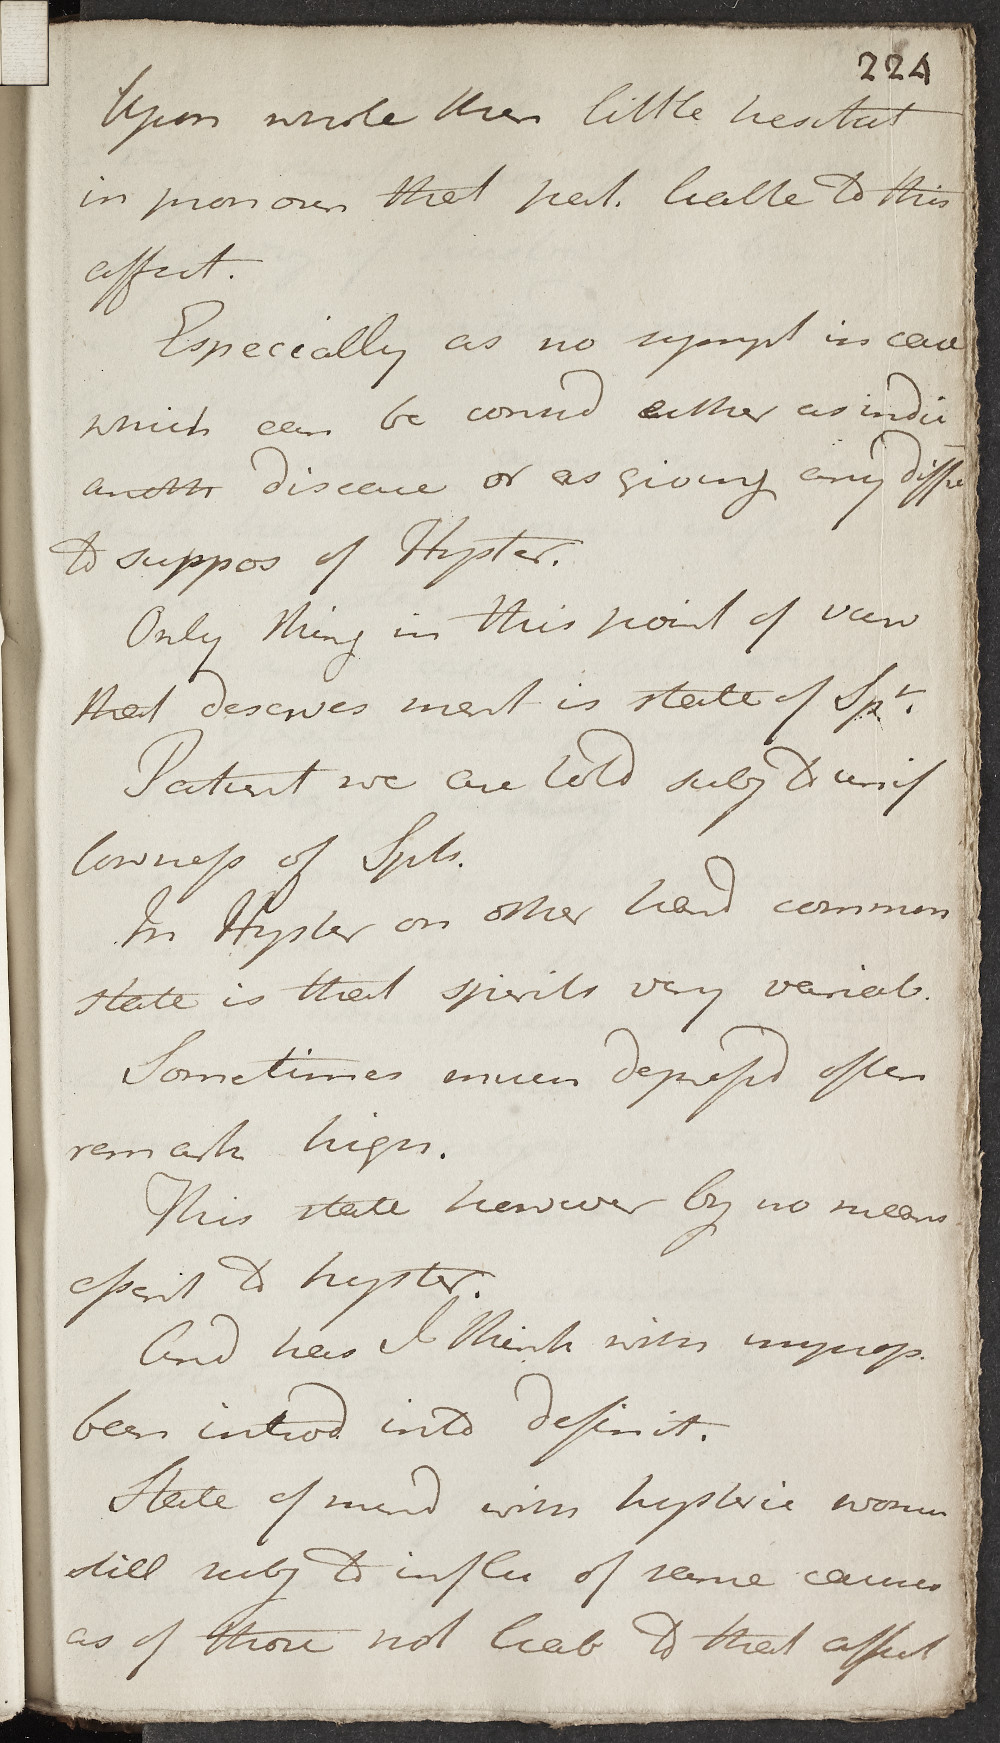 224
Upon whole then little hesitat
in pronoun that pat. liable to this
affect.
Especially as no sympt in case
which can be consid either as indic
anoth disease or as giving any diffic
to suppos of Hyster.
Only thing in this point of view
that deserves ment is state of Spt.
Patient we are told subj to unif
lowness of Spts.
In Hyster on other hand common
state is that spirits very variab.
Sometimes much depress'd often
remark high.
This state however by no means
essent to hyster.
And has I think with improp.
been introd into definit.
State of mind with hysteric women
still subj to influ of same causes
as of those not liab to that affect